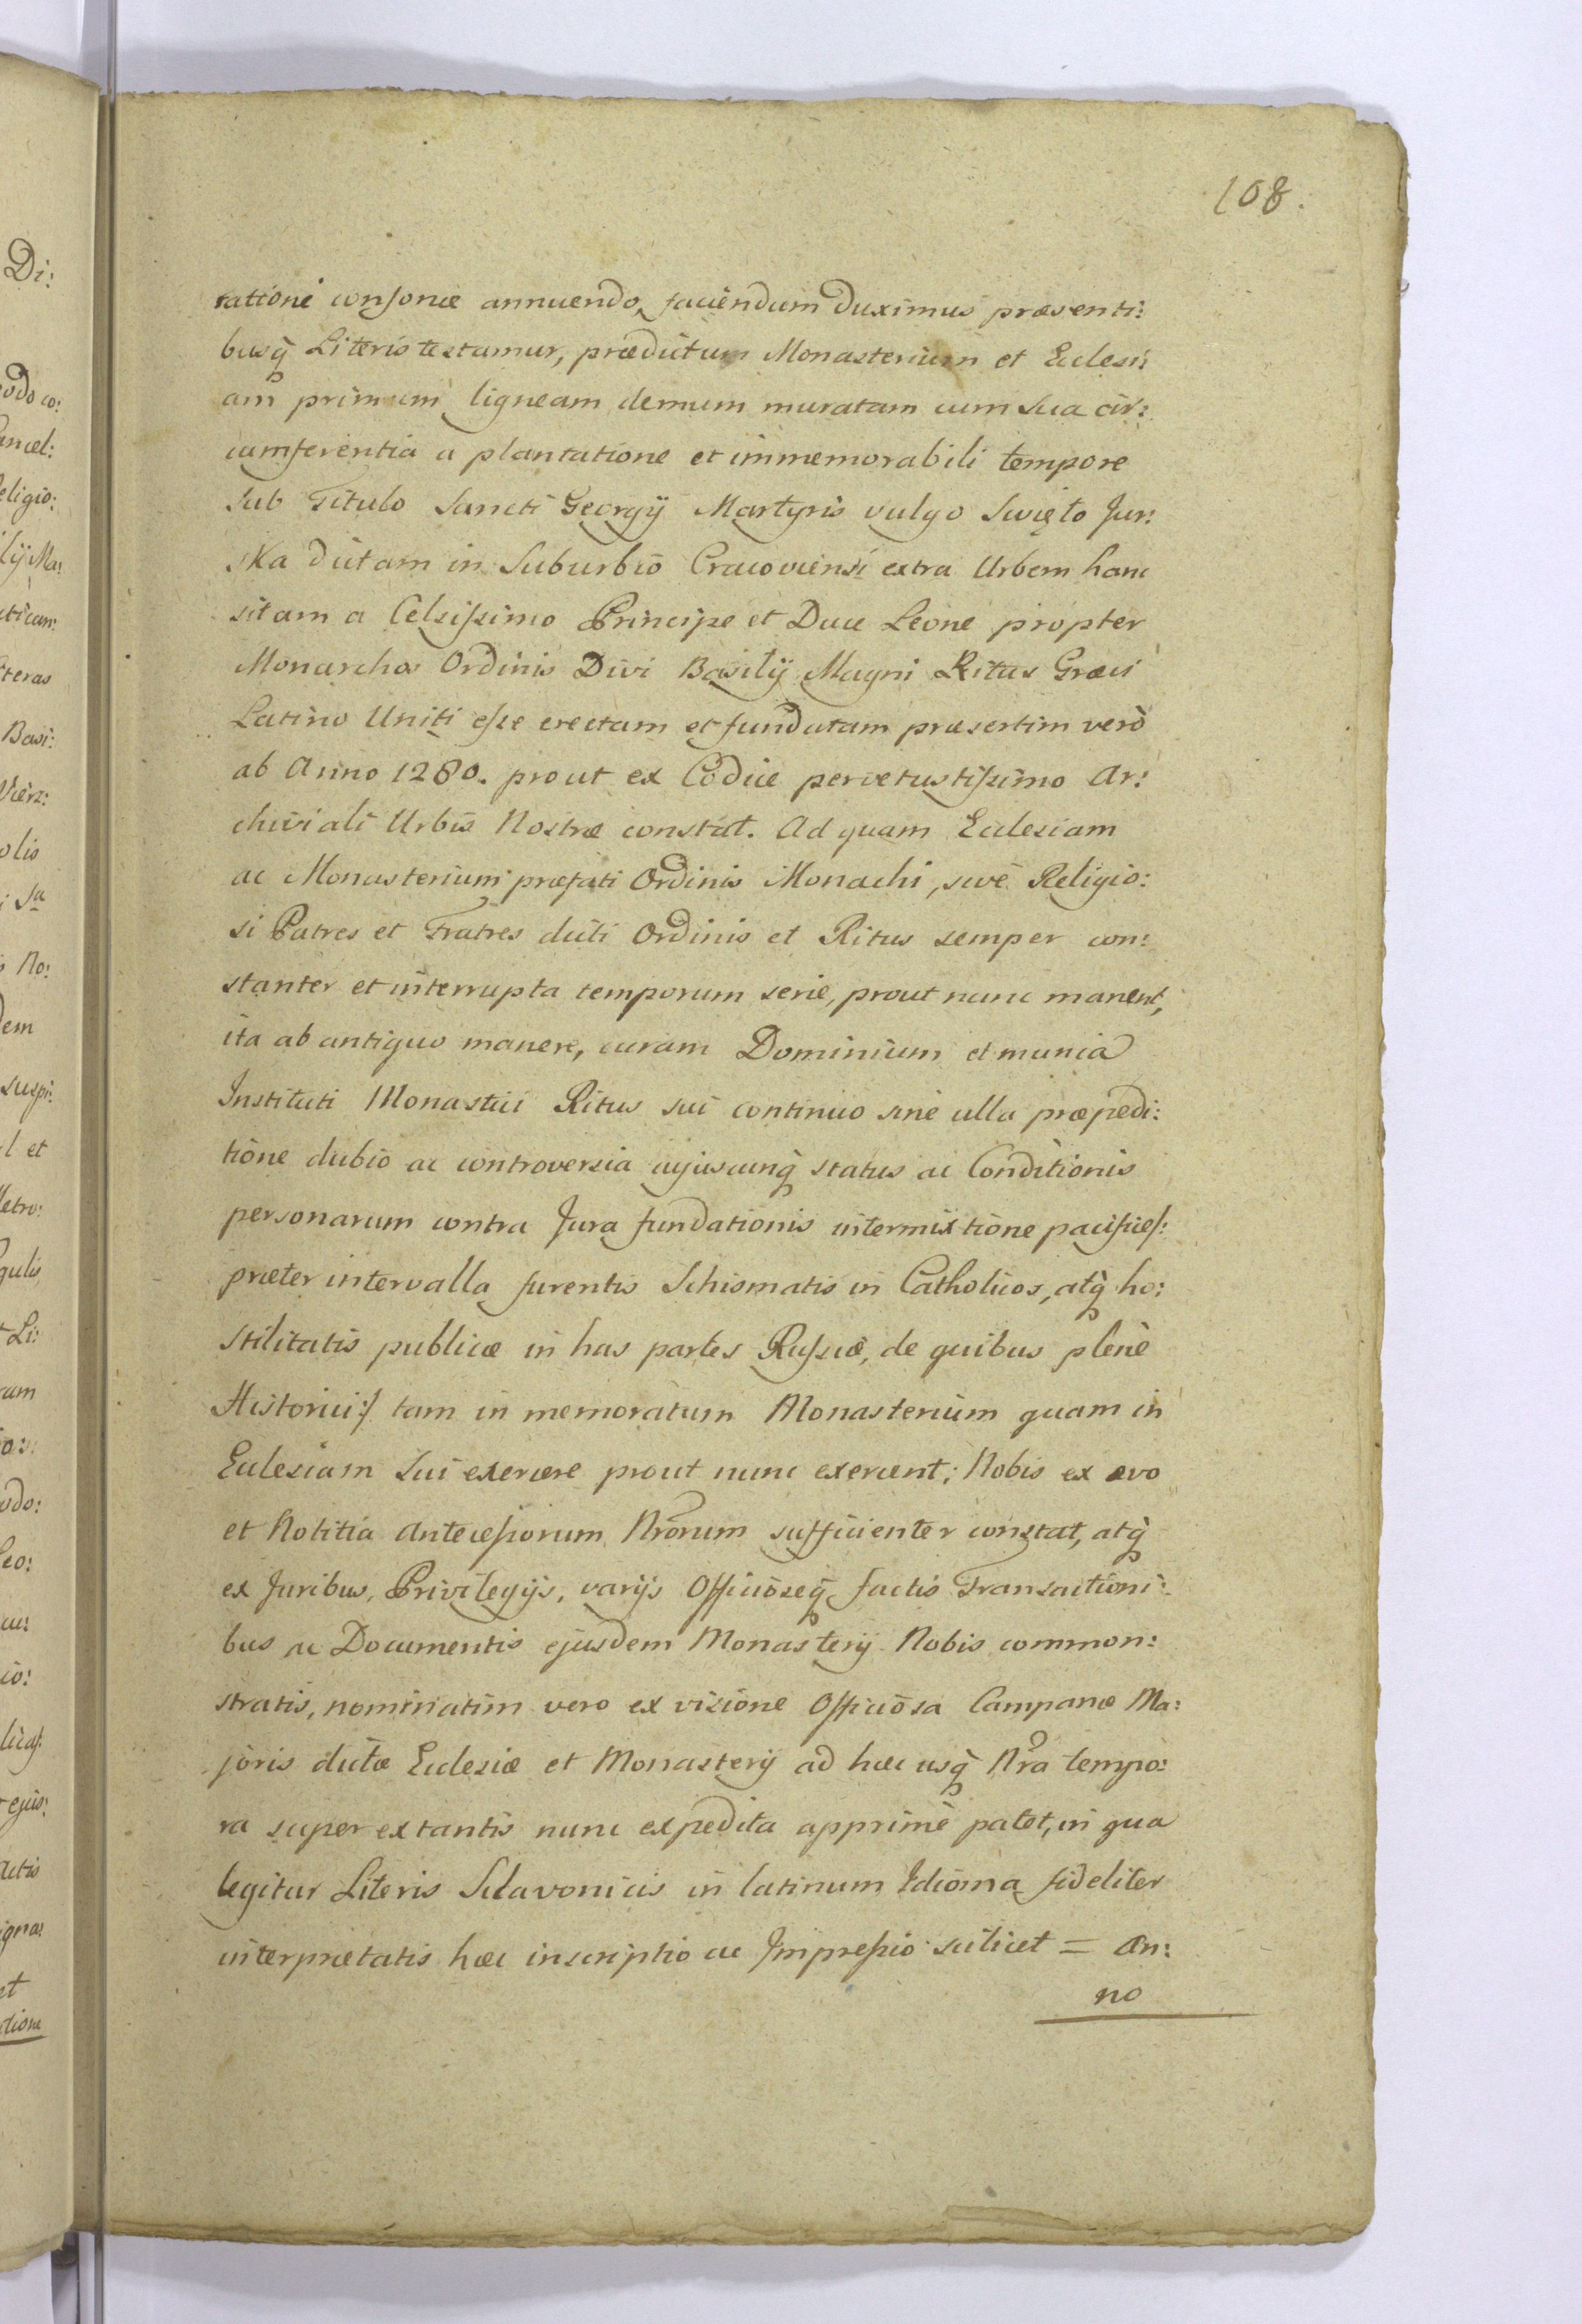 108.
rationi consonæ annuendo, faciendum duximus præsenti:
busq̀ Literis testamur, prædictum Monasterium et Eclesi:
am primum ligneam demum muratam cum sua cir:
cumferentia a plantatione et immemorabili tempore
sub Titulo Sancti Georgÿ Martyris vulgo Swięto Jur:
ska dictam in Suburbio Cracoviensi extra Urbem hanc
sitam a Celsissimo Principe et Duce Leone propter
Monarchos Ordinis Divi Basilÿ Magni Ritus Græci
Latino Uniti esse erectam et fundatam præsertim verò
ab Anno 1280. prout ex Codice pervetustissimo Ar:
chiviali Urbis Nostræ constat. Ad quam Eclesiam
ac Monasterium præfati Ordinis Monachi, sive Religio:
si Patres et Fratres dicti Ordinis et Ritus semper con:
stanter et interrupta temporum serie, prout nunc manent,
ita ab antiquo manere, curam Dominium et munia
Instituti Monastici Ritus sui continuo sine ulla præpedi:
tione dubio ac controversia cujuscunq̀ status ac Conditionis
personarum contra Jura fundationis intermixtione pacifice/:
præter intervalla furentis Schismatis in Catholicos, atq̀ ho:
stilitatis publicæ in has partes Russiæ, de quibus plenè
Historici:/ tam in memoratum Monasterium quam in
Eclesiam sui exercere prout nunc exercent; Nobis ex ævo
et Notitia Antecessorum Nrorum sufficienter constat, atq̀
ex Juribus, Privilegÿs, varÿs Officioseq̀ factis Transactioni:
bus ac Documentis ejusdem Monasterÿ Nobis common:
stratis, nominatim vero ex visione Officiosa Campanæ Ma:
joris dictæ Eclesiæ et Monasterÿ ad hæc usq̀ Nra tempo:
ra super extantis nunc expedita apprimè patet, in qua
legitur Literis Sclavonicis in latinum Idioma fideliter
interprætatis hæc inscriptio ac Impressio scilicet = An:
no